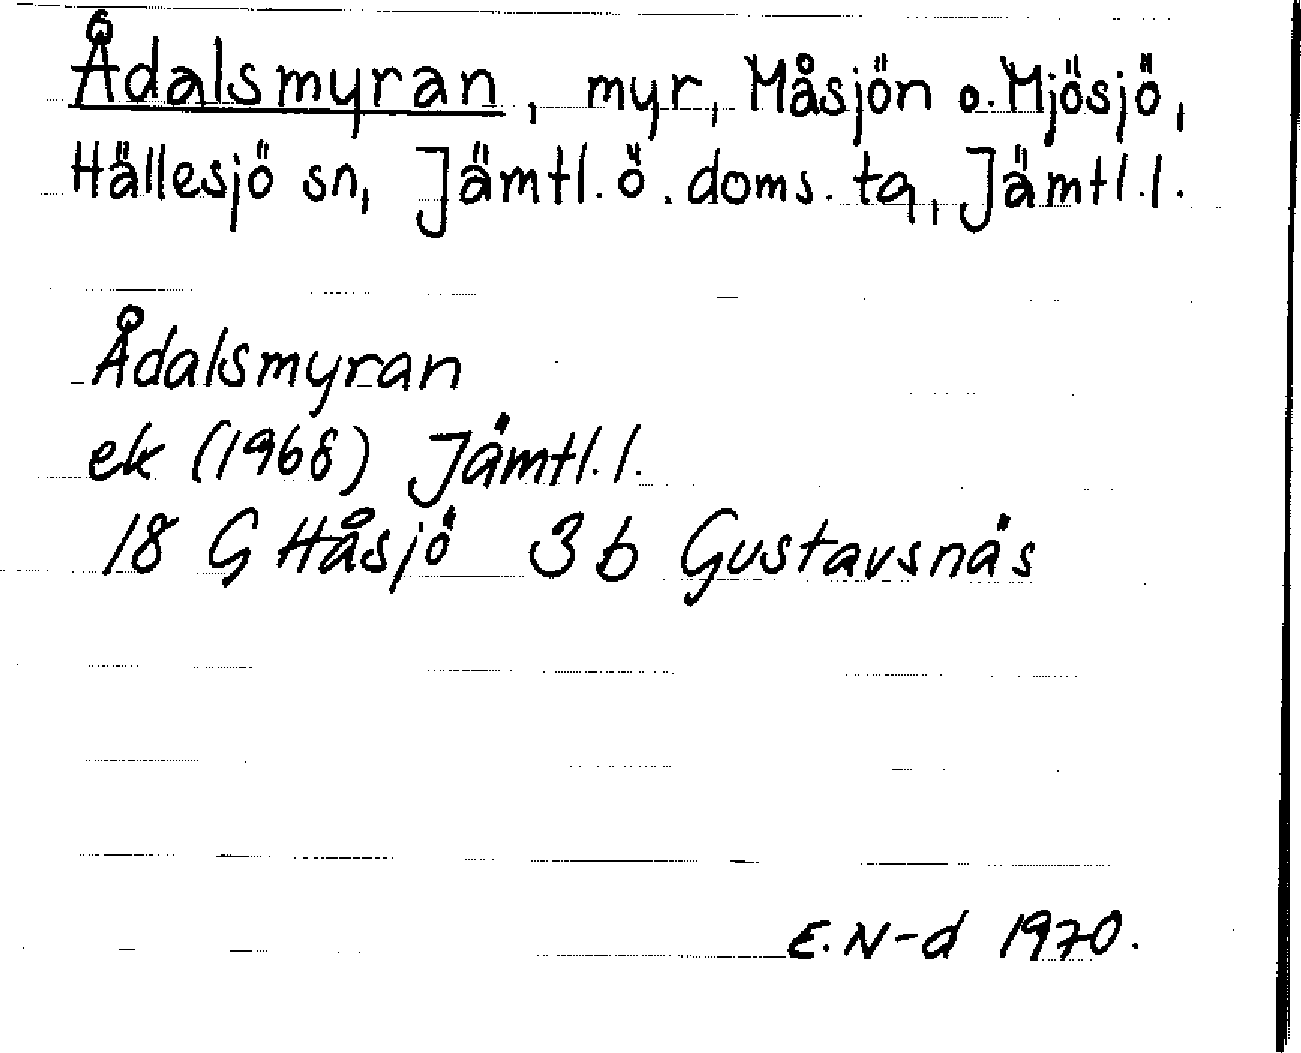 Ådalsmyran, myr, Måsjön o. Mjösjö,
Hällesjö sn, Jämtl. ö. doms. tg, Jämtl. l.
Ådalsmyran
ek (1968) Jämtl. l.
18 G Håsjö 3 b Gustavsnäs
E. N-d 1970.